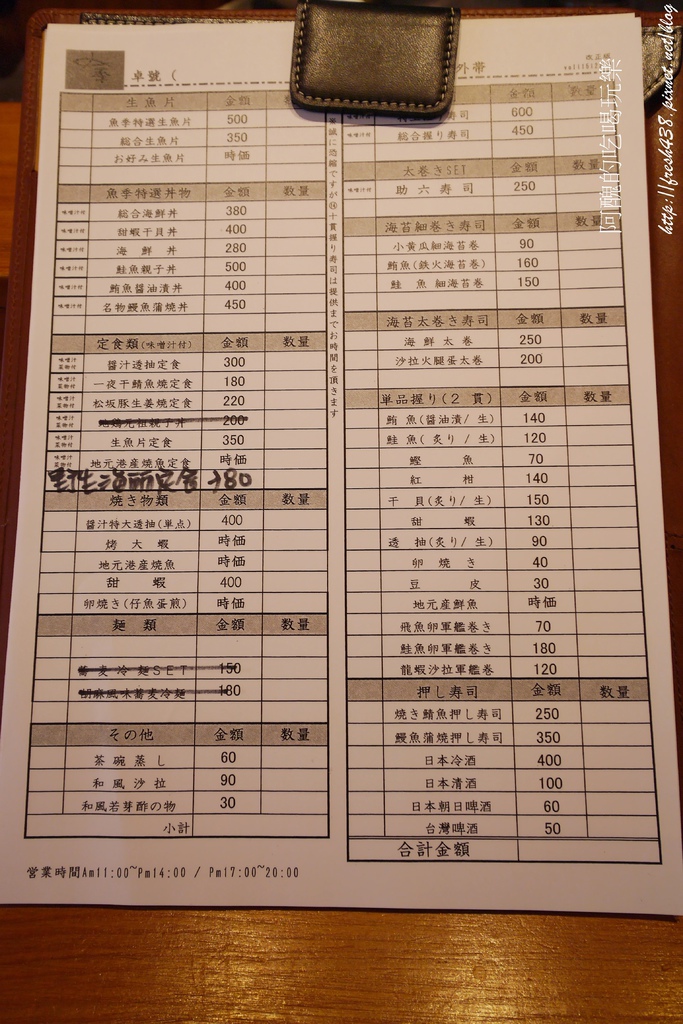 季 卓號 (
外帯
生魚片 金額 數
魚季特選生魚片 500
綜合生魚片 350
お好み生魚片 時価
魚季特選丼物 金額 数量
味噌汁付 綜合海鮮丼 380
味噌汁付 甜蝦干貝丼 400
味噌汁付 海鮮丼 280
味噌汁付 鮭魚親子丼 500
味噌汁付 鮪魚醤油漬丼 400
味噌汁付 名物鰻魚蒲焼丼 450
定食類(味噌汁付) 金額 数量
醤汁透抽定食 300
一夜干鯖魚焼定食 180
松坂豚生姜焼定食 220
地鶏元祖親子丼 200
生魚片定食 350
地元港産焼魚定食 時価
180
焼き物類 金額 数量
醤汁特大透抽(単点) 400
烤大蝦 時価
地元港産焼魚 時価
甜蝦 400
卵焼き(仔魚蛋煎) 時価
麺類 金額 数量
蕎麦冷麺SET 150
胡麻風味蕎麦冷麺 180
その他 金額 数量
茶碗蒸し 60
和風沙拉 90
和風若芽酢の物 30
小計
営業時間Am11:00~Pm14:00 / Pm17:00~20:00
十貫握り寿司は提供までお時間を頂きます
金額 数量
寿司 600
味噌汁付 綜合握り寿司 450
太巻きSET 金額 数量
味噌汁付 助六寿司 250
海苔細巻き寿司 金額 数量
小黄瓜細海苔巻 90
鮪魚(鉄火海苔巻) 160
鮭魚細海苔巻 150
海苔太巻き寿司 金額 数量
海鮮太巻 250
沙拉火腿蛋太巻 200
単品握り(2貫) 金額 数量
鮪魚(醤油漬/生) 140
鮭魚(炙り/生) 120
鰹魚 70
紅柑 140
干貝(炙り/生) 150
甜蝦 130
透抽(炙り/生) 90
卵焼き 40
豆皮 30
地元産鮮魚 時価
飛魚卵軍艦巻き 70
鮭魚卵軍艦巻き 180
龍蝦沙拉軍艦巻 120
押し寿司 金額 数量
焼き鯖魚押し寿司 250
鰻魚蒲焼押し寿司 350
日本冷酒 400
日本清酒 100
日本朝日啤酒 60
台灣啤酒 50
合計金額
阿醜的吃喝玩樂
http://fresh438.pixnet.net/blog